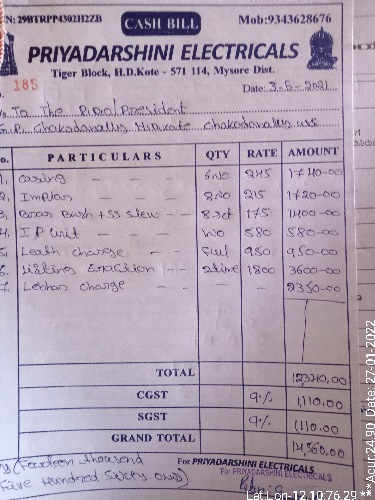 N: 29BTRPP4302H2ZB
CASH BILL
Mob:9343628676
PRIYADARSHINI ELECTRICALS
Tiger Block, H.D.Kote - 571 114, Mysore Dist.
185
Date: 3-5-2021
To The P.D.O/President
G.P. Chakodanally H.D.Kote Chakodanally
o. PARTICULARS QTY RATE AMOUNT
1, Casing - - - 245 1740-00
2, - - - 8NO 215 1720-00
3, Bush + SS - - 8 Set 175 1400-00
4. I P Unit - - - NO 580 580-00
5. Leath charge - 950 950-00
6. - - 2time 1800 3600-00
7. Lebhar charge - - - - 2350-00
TOTAL 12340,00
CGST 9% 1,110.00
SGST 9% 1,110.00
GRAND TOTAL 14,560.00
(Fourteen thousand
Five Hundred Sixty only)
For PRIYADARSHINI ELECTRICALS
For PRIYADARSHINI ELECTRICALS
Lat Lon-12,10;76.29 ***Acur:24.90, Date: 27-01-2022